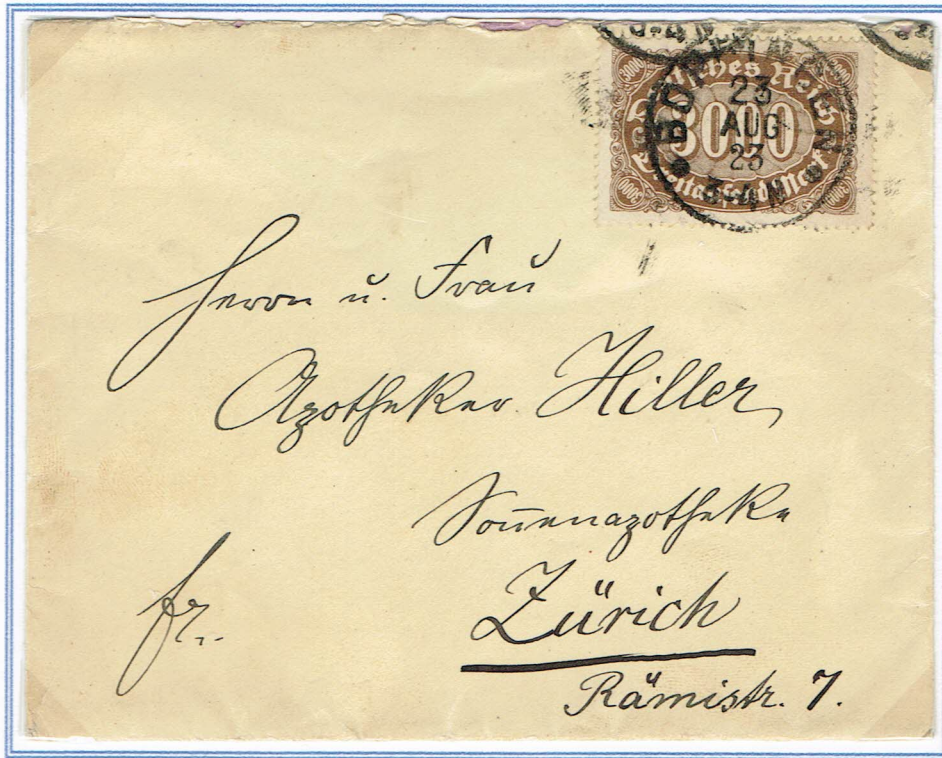 Deutsches Reich
3000
Dreitausend Mark
BOPFINGEN
23
AUG
23
3-4 N
Herrn u. Frau
Apotheker Hiller
Son̄enapotheke
fr.
Zürich
Rämistr. 7.